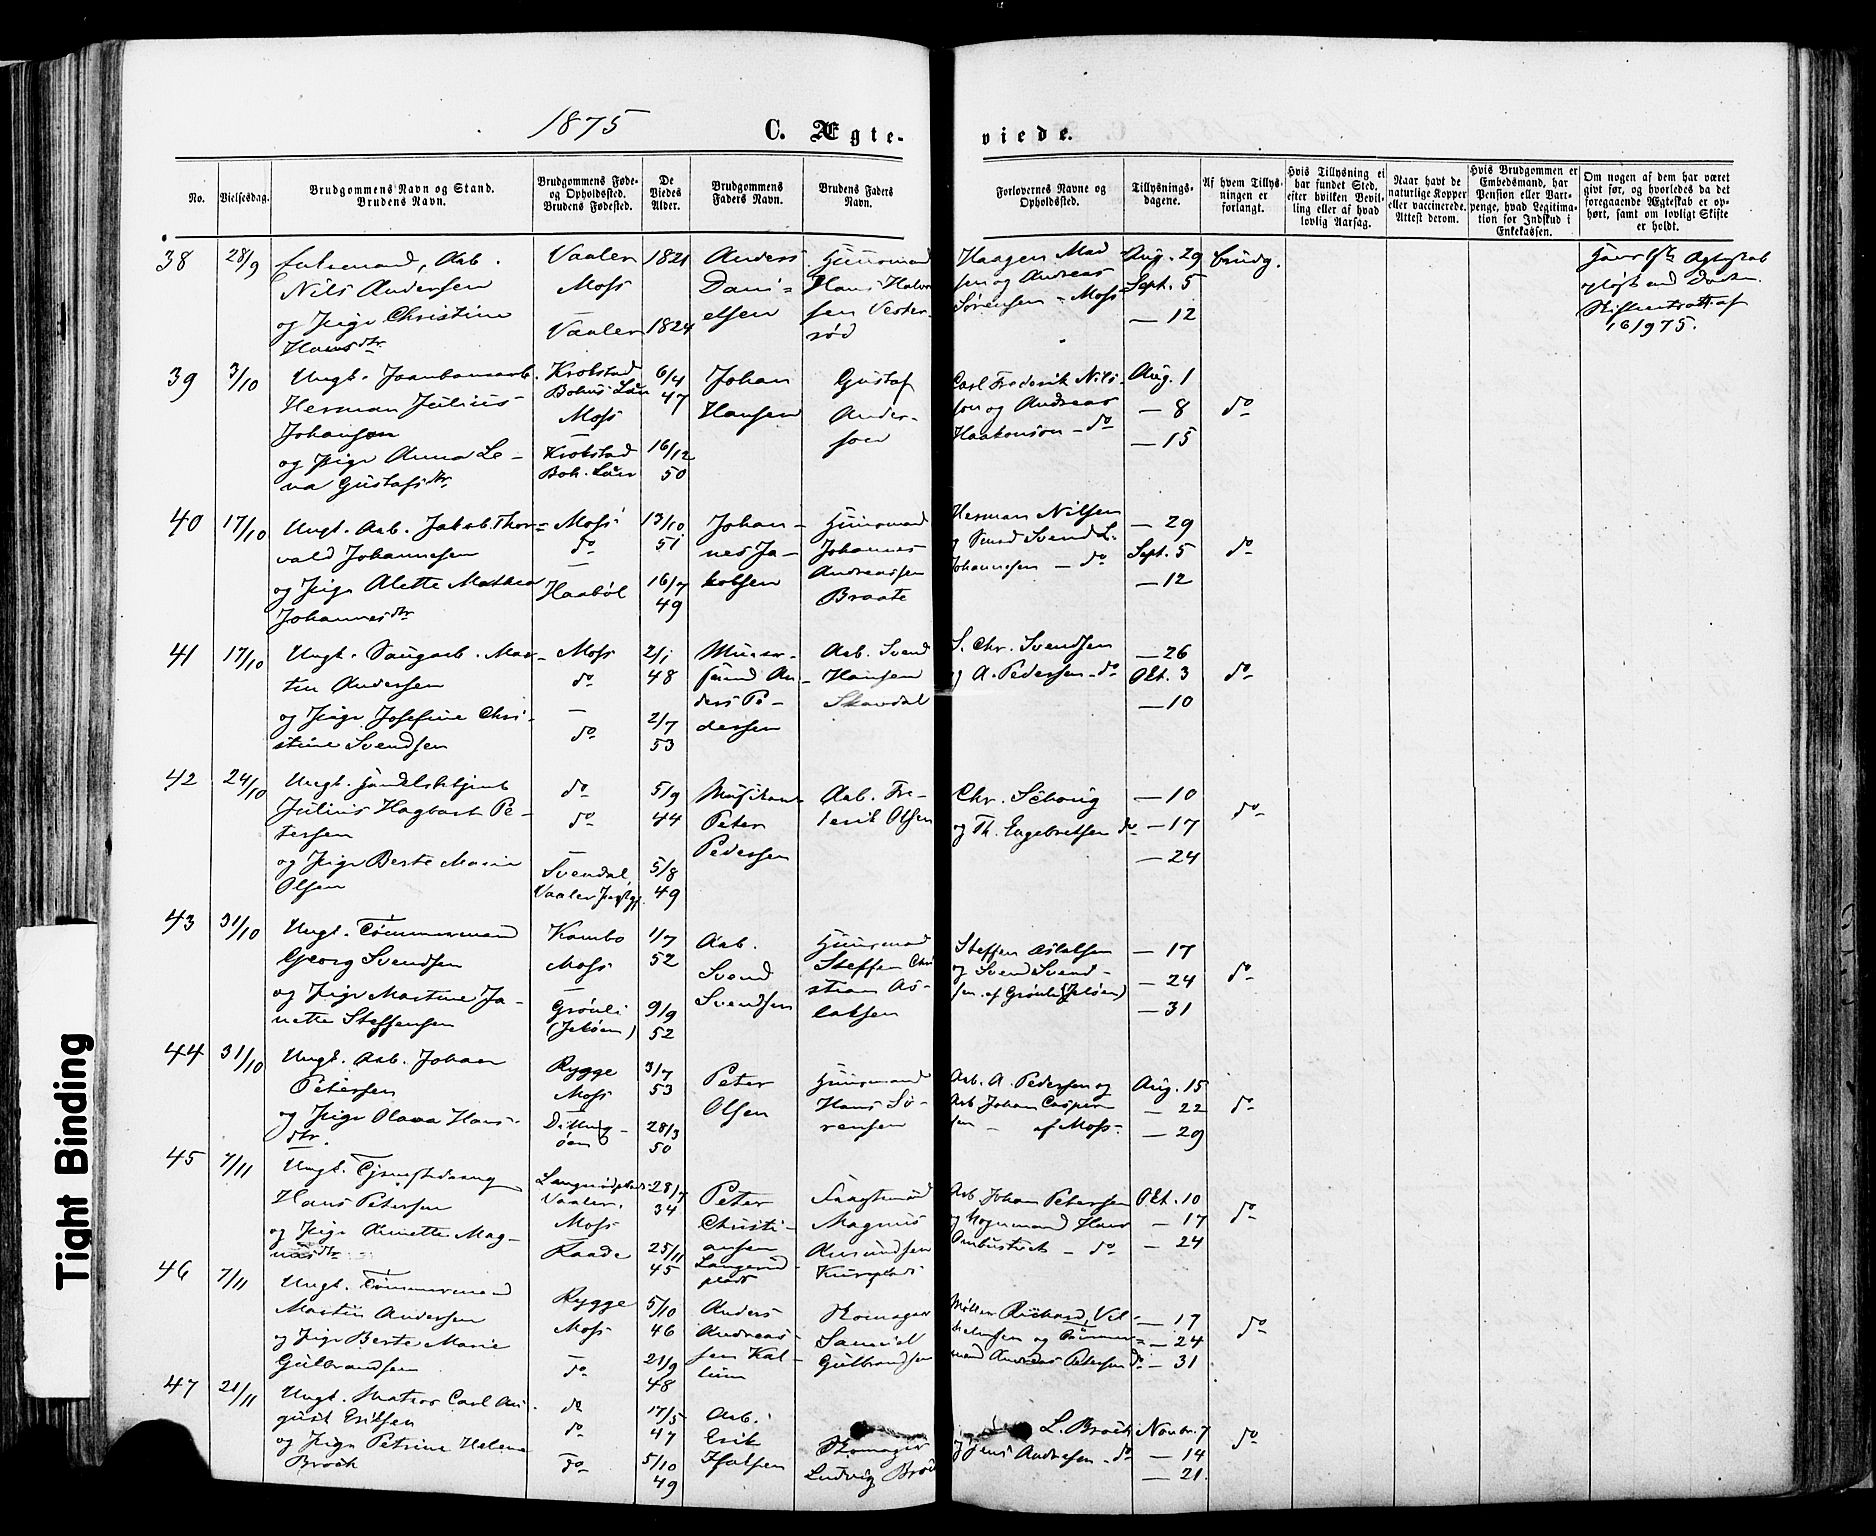 1875
C. Ægte-
viede.
No.
Vielsesdag.
Brudgommens Navn og Stand.
Brudens Navn.
Brudgommens Føde-
og Opholdssted.
Brudens Fødested.
De
Viedes
Alder.
Brudgommens
Faders Navn.
Brudens Faders
Navn.
Forlovernes Navne og
Opholdssted.
Tillysnings-
dagene.
Af hvem Tillys-
ningen er
forlangt.
Hvis Tillysning ei
har fundet Sted,
efter hvilken Bevil-
ling eller af hvad
lovlig Aarsag.
Naar havt de
naturlige Kopper
eller vaccinerede.
Attest derom.
Hvis Brudgommen er
Embedsmand, har
Pension eller Vart-
penge, hvad Legitima-
tion for Indskud i
Enkekassen.
Om nogen af dem har været
givt før, og hvorledes da det
foregaaende Ægteskab er op-
hørt, samt om lovligt Skifte
er holdt.
38 28/9
Enkemand, Arb.
Nils Andersen
og Pige Christine
Hansdtr.
Vaaler
Moss
Vaaler
1821
1824
Anders
Dani-
elsen
Huusmand
Hans Halvor
sen Vester
rød
Haagen Mad
sen og Andreas
Sørensen - Moss
Aug. 29
Sept. 5
— 12
brudg.
Hans 1ste Ægteskab
opløst ved Døden.
Skifteattest af
16/9 75.
39 3/10
Ungk. Jernbanearb.
Herman Julius
Johanson
og Pige Anna Le-
na Gustafsdtr.
Krokstad
Bohus Län
Moss
Krokstad
Boh. Län
6/4
47
16/12
50
Johan
Hansen
Gustaf
Ander-
son
Carl Frederik Nils-
son og Andreas
Haakonson - do
Aug. 1
— 8
— 15
do
40 17/10
Ungk. Arb. Jakob Thor-
vald Johannesen
og Pige Alette Mathea
Johannesdtr
Moss
do
Haabøl
13/10
51
16/7
49
Johan-
nes Ja-
kobsen
Huusmand
Johannes
Andreassen
Braate
Herman Nilsen
og Smed Svend L.
Johannesen - do
— 29
Sept. 5
— 12
do
41 17/10
Ungk. Saugarb. Mar-
tin Andersen
og Pige Josefine Chri-
stine Svendsen
Moss
do
do
2/1
48
2/7
53
Murer-
svend An-
ders Pe-
dersen
Arb. Svend
Hansen
Skovdal
S. Chr. Svendsen
og A. Pedersen - do
— 26
Okt. 3
— 10
do
42 24/10
Ungk. Handelsbetjent
Julius Hagbart Pe-
tersen
og Pige Berte Marie
Olsen
do
do
Svendal,
5/9
44
5/8
49
Musikant
Peter
Pedersen
Arb. Fre-
derik Olsen
Chr. Schouig
og Th. Engebretsen do
— 10
— 17
— 24
do
43 31/10
Ungk. Tømmermand
Georg Svendsen
og Pige Martine Ja-
nette Steffensen
Kambo
Moss
Grønli
(Jeløen)
1/7
52
9/9
52
Arb.
Svend
Svendsen
Huusmand
Steffen Chri
stian As-
laksen
Steffen Aslaksen
og Svend Svend-
sen. af Grønli (Jeløen)
— 17
— 24
— 31
do
44 31/10
Ungk. Arb. Johan
Petersen
og Pige Olava Hans-
dtr.
Rygge
Moss
3/7
53
28/3
50
Peter
Olsen
Huusmand
Hans Sø-
rensen
Arb. A. Pedersen og
Arb. Johan Casper
sen - af Moss.
Aug. 15
— 22
— 29
do
45 7/11
Hans Petersen
og Pige Annette Mag-
nusdtr
Vaaler.
Moss
Raade
28/7
34
25/11
45
Peter
Christi-
ansen
Langerud
plads
Magnus
Amundsen
Arb. Johan Petersen
Okt. 10
— 17
— 24
do
46 7/11
Ungk. Tømmermand
Martin Andersen
og Pige Berte Marie
Gulbrandsen
Rygge
Moss
do
5/10
46
21/9
48
Anders
Andreas-
sen Kal-
lum
Skomager
Samuel
Gulbrandsen
Møller Richard Vil-
helmsen og Tømmer-
mand Andreas Petersen do
— 17
— 24
— 31
do
47 21/11
Ungk. Matros Carl Au-
gust Eriksen
og Pige Petrine Helene
Broch
do
do
do
17/5
47
5/10
49
Arb.
Erik
Skomager
Ludvig Broch
L. Broch
og Jens Andresen - do
Novbr. 7
— 14
— 21.
do
Tight Binding